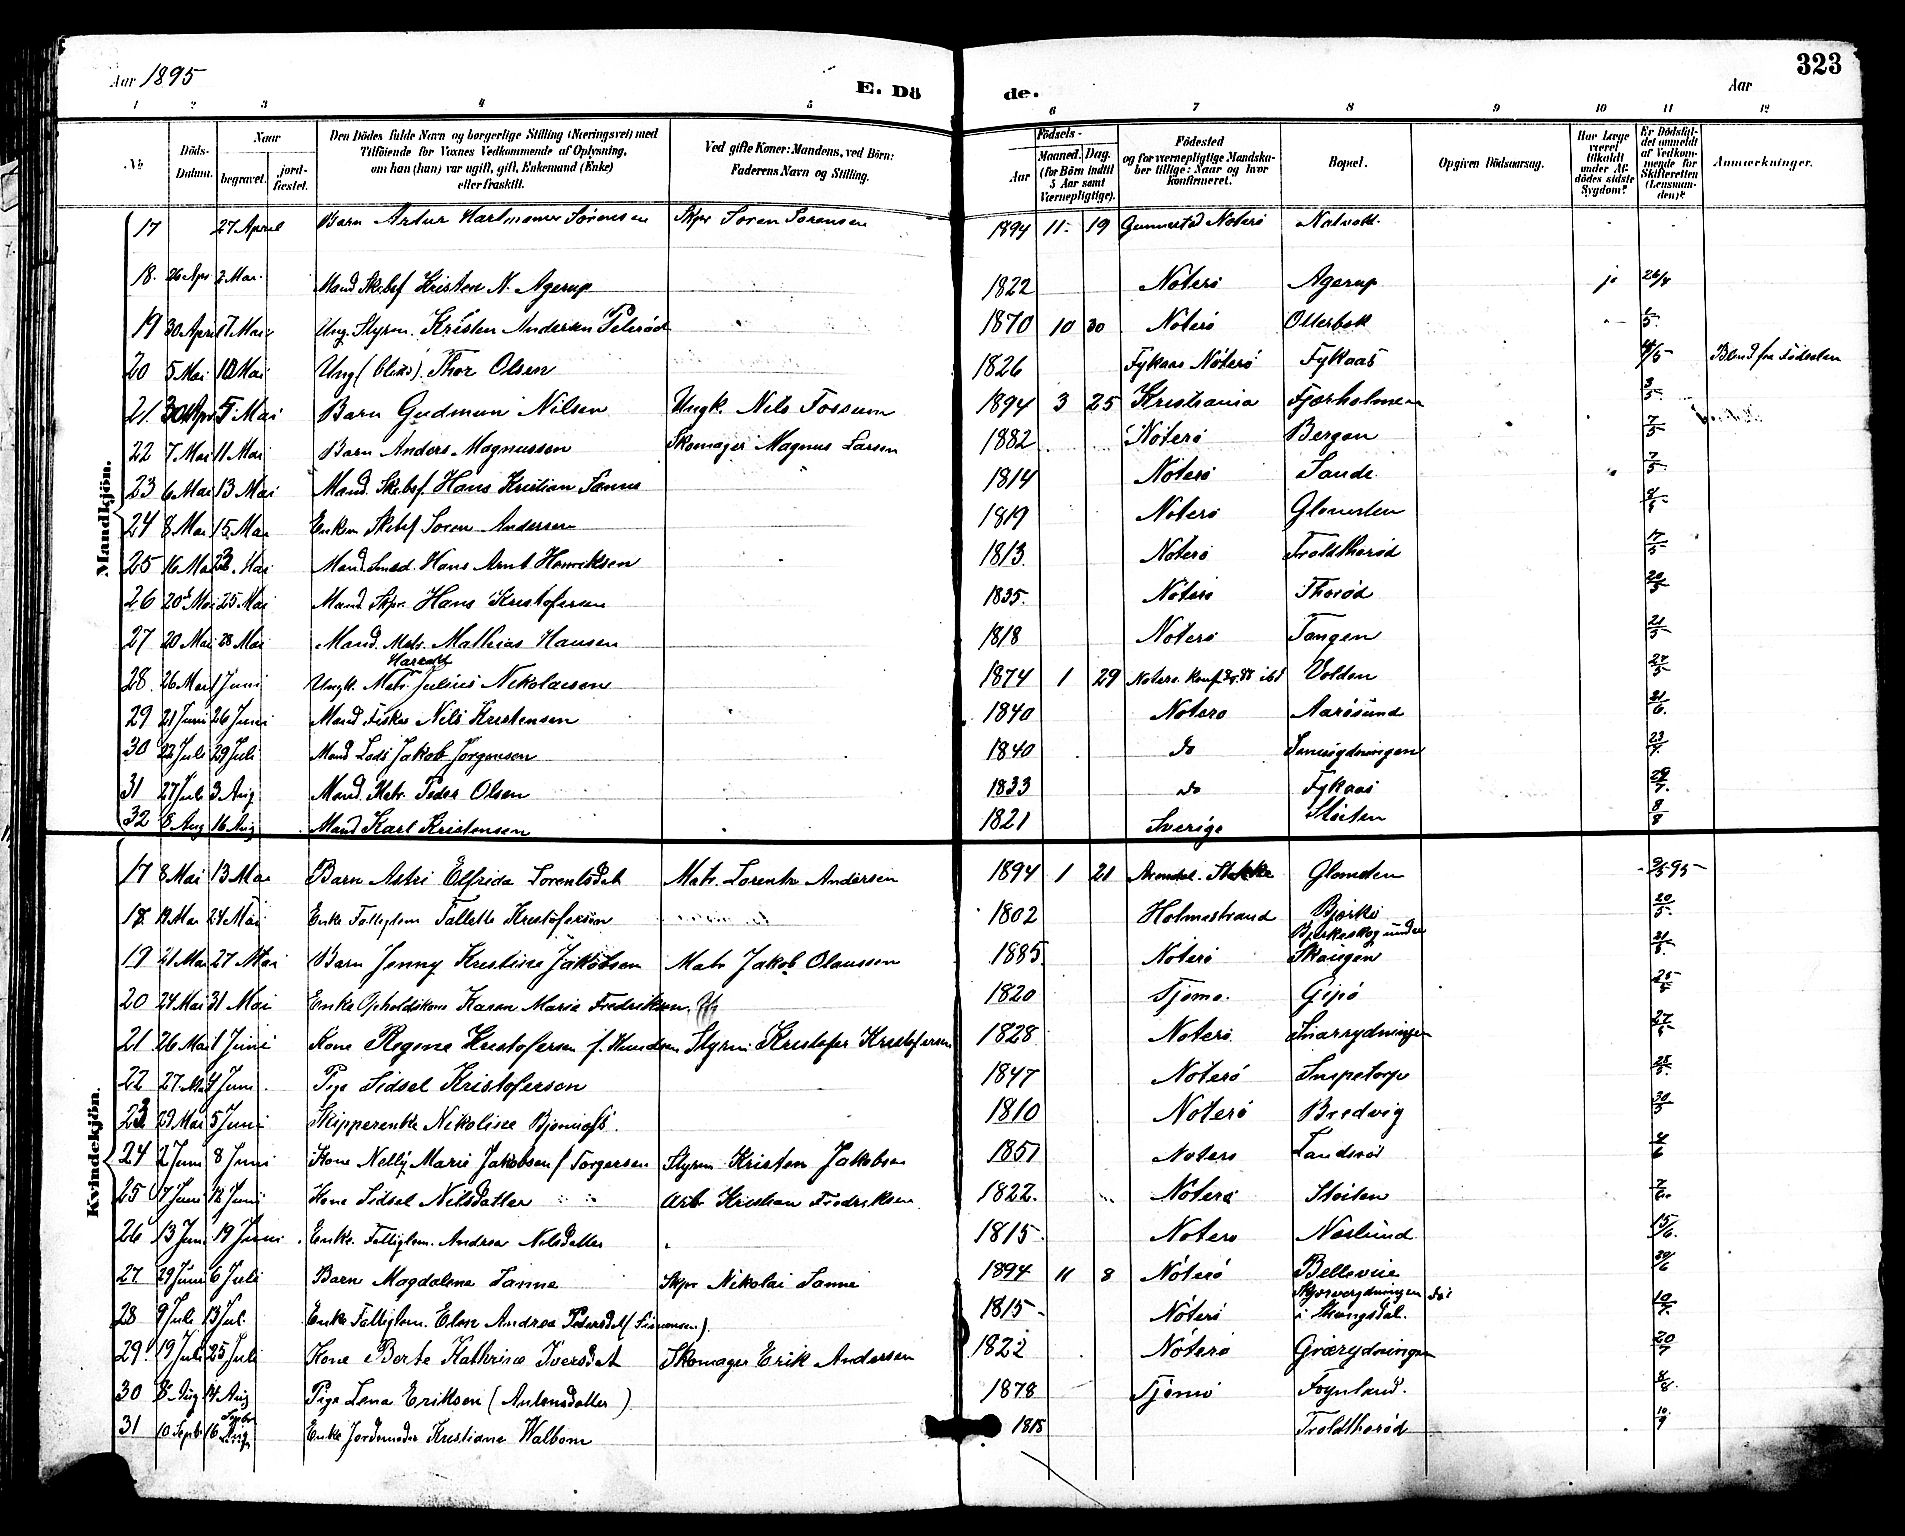 323
Aar 1895
E. Dö de.
Aar
1 2 3 4 5 6 7 8 9 10 11 12
No
Döds-Datum.
Naar begravet. jordfæstet.
Den Dödes fulde Navn og borgerlige Stilling (Næringsvei) med Tilföiende for Voxnes Vedkommende af Oplysning, om han (hun) var ugift, gift, Enkemand (Enke) eller fraskilt.
Ved gifte Koner: Mandens, ved Börn: Faderens Navn og Stilling.
Födsels-
Aar Maaned. Dag. (for Börn indtil 5 Aar samt Værnepligtige).
Födested og for værnepligtige Mandskaber tillige: Naar og hvor konfirmeret.
Bopæl.
Opgiven Dödsaarsag.
Har Læge været tilkaldt under Afdödes sidste Sygdom?
Er Dödsfaldet anmeldt af Vedkommende for Skifteretten (Lensmanden)?
Anmærkninger.
Mandkjön.
17 27 April Barn Artur Hartmann Sörensen Skpr Soren Sorensen 1894 11 19 Gunnerstad Noterö
18. 26 Apr 2 Mai. Mand Skibsf Kristen N. Agerup 1822 Noterö Agerup ja 26/4
19 30 April 7 Mai Ung. Styrm. Kristen Andersen Peterød 1870 10 30 Noterö Ollerbek
20 5 Mai 10 Mai Ung (blind). Thor Olsen 1826 Fykaas Nöterö Fykaas Blind fra Födselen
21. 30 Apr 5 Mai Barn Gudmun Nilsen Ungk. Nils Fossum 1894 3 25 Kristiania Fjærholmen 3/5
22 7 Mai 11 Mai Barn Anders Magnussen Skomager Magnus Larsen 1882 Nöterö Bergan 7/5
23 6 Mai 13 Mai Mand. Skibsf. Hans Kristian Sanne 1814 Nöterö Sande 7/5
24 8 Mai 15 Mai Enkem Skibsf Soren Andersen 1819 Noterö
25 16 Mai 23. Mai Mand. Smed. Hans Arnt Henriksen 1813. Noterö Troldthorød 17/5
26 20 Mai 25 Mai Mand. Skpr. Hans Kristofersen 1835. Nöterö Thorød 20/5
27 20 Mai 28 Mai Mand. Matr. Mathias Hansen 1818 Noterö Tangen 21/5
28. 26 Mai 1 Juni Ungk. Matr. Harald Julius Nikolaisen 1874 1 29 Noterö. Konf. Volden 27/5
29 21 Juni 26 Juni Mand Fisker Nils Kristensen 1840 Noterö Aarösund 21/6
30 22 Juli 29 Juli Mand Lods Jakob Jorgensen 1840 do 23/7
31 27 Juli 3 Aug Mand. Matr. Peder Olsen 1833 do Fykaas 29/7
32 8 Aug 16 Aug Mand Karl Kristensen 1821 Sverige Stöiten 8/8
Kvindekjön.
17 8 Mai 13 Mai Barn Astri Elfrida Lorentsdat Matr. Lorentz Andersen 1894 1 21 Stokke Glomsten
18 19 Mai 24 Mai Enke Falliglem Tallette Kristofersen 1802 Holmestrand Bjerkö 20/5
19 21 Mai 27 Mai Barn Jenny Kristine Jakobsen Matr Jakob Olaussen 1885. Nöterö Bjerkeskog under Skaugen 21/5
20 24 Mai 31 Mai Enke Opholdskone Karen Maria Fredriksen 1820 Tjömö. Gipö 25/5
21. 26 Mai 1 Juni Kone Regine Kristofersen f. Knudsen Styrm. Kristofer Kristofersen 1828 Noterö Snarrydningen 27/5
22 27 Mai 4 Juni. Pige Sidsel Kristofersen 1847 Noterö Snipetorp
23 29 Mai 5 Juni Skipperenke Nikoline 1810 Noterö Bredvig 30/5
24 2 Juni 8 Juni Kone Nelly Marie Jakobsen f Torgersen Styrm Kristen Jakobsen 1851 Noterö
25 7 Juni 12 Juni Kone Sidsel Nilsdatter Arb. Kristian Fredriksen 1822. Nöterö Stöiten
26 13 Juni 19 Juni Enke. Falliglem. Andrea Nilsdatter 1815 Noterö Neslund 15/6
27 29 Juni 6 Juli Barn Magdalene Sanne Skpr Nikolai Sanne 1894 11 8 Nöterö Bellevue
28 9 Juli 13 Jul. Enke Falliglem. Elen Andrea Pedersdat (Simonsen). 1815 Nöterö 10/7
29. 19 Juli 25 Juli Kone Berte Kathrine Iversdat Skomager Erik Andersen 1822 Nöterö Grærydningen 20/7
30 8 Aug 14 Aug Pige Lena Eriksen (Antonsdatter) 1878 Tjömö Föynland. 8/8
31 10 Septb 16 Septbr Enke Jordemoder Kristiane Walbom 1818 Troldthorød 10/9